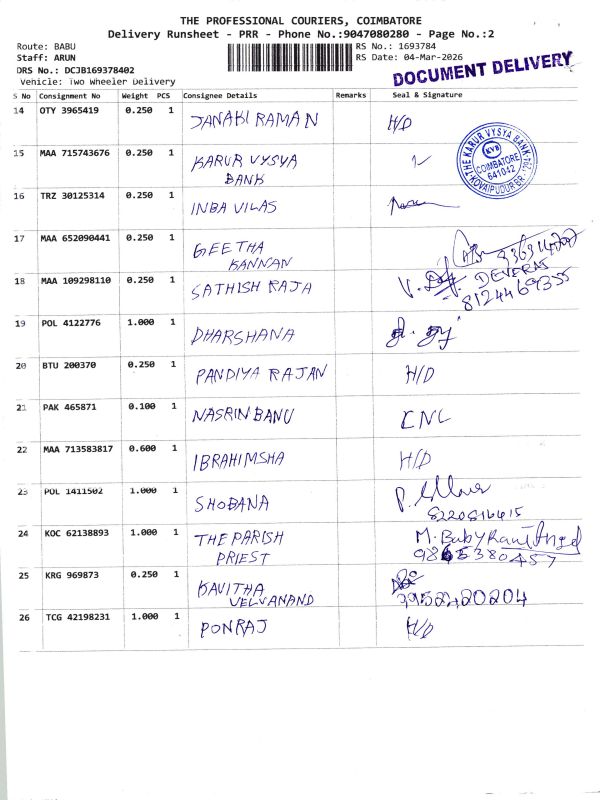 THE PROFESSIONAL COURIERS, COIMBATORE
Delivery Runsheet - PRR - Phone No.:9047080280 - Page No.:2
Route: BABU
Staff: ARUN
DRS No.: DCJB169378402
Vehicle: Two Wheeler Delivery
RS No.: 1693784
RS Date: 04-Mar-2026
DOCUMENT DELIVERY
S No Consignment No Weight PCS Consignee Details Remarks Seal & Signature
14 OTY 3965419 0.250 1 JANAKI RAMAN H/D
15 MAA 715743676 0.250 1 KARUR VYSYA
BANK
THE KARUR VYSYA BANK
KVB
COIMBATORE
641042
KOVAIPUDUR BR.
16 TRZ 30125314 0.250 1 INBA VILAS
17 MAA 652090441 0.250 1 GEETHA
KANNAN
18 MAA 109298110 0.250 1 SATHISH RAJA
8124469355
19 POL 4122776 1.000 1 DHARSHANA
20 BTU 200370 0.250 1 PANDIYA RAJAN H/D
21 PAK 465871 0.100 1 NASRIN BANU CNL
22 MAA 713583817 0.600 1 IBRAHIMSHA H/D
23 POL 1411502 1.000 1 SHOBANA
24 KOC 62138893 1.000 1 THE PARISH M. Baby Rani
PRIEST
25 KRG 969873 0.250 1 KAVITHA
VELVANAND
26 TCG 42198231 1.000 1 PONRAJ H/D